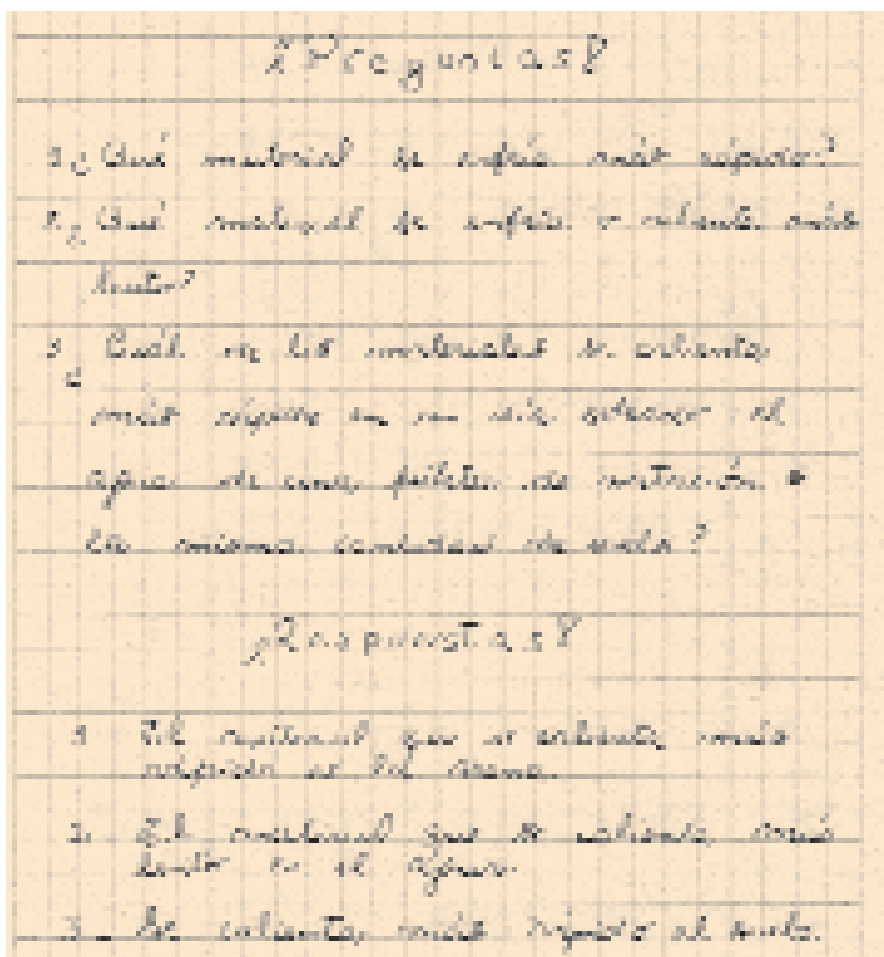 ¿Preguntas?
1. ¿Qué material se enfría más rápido?
2. ¿Qué material se enfría o calienta más
lento?
3. ¿Cuál de los materiales se calienta
más rápido en un día caluroso el
agua de una pileta de natación o
la misma cantidad de suelo?
¿Respuestas?
1. El material que se calienta más
rápido es la arena.
2. El material que se calienta más
lento es el agua.
3. Se calienta más rápido el suelo.